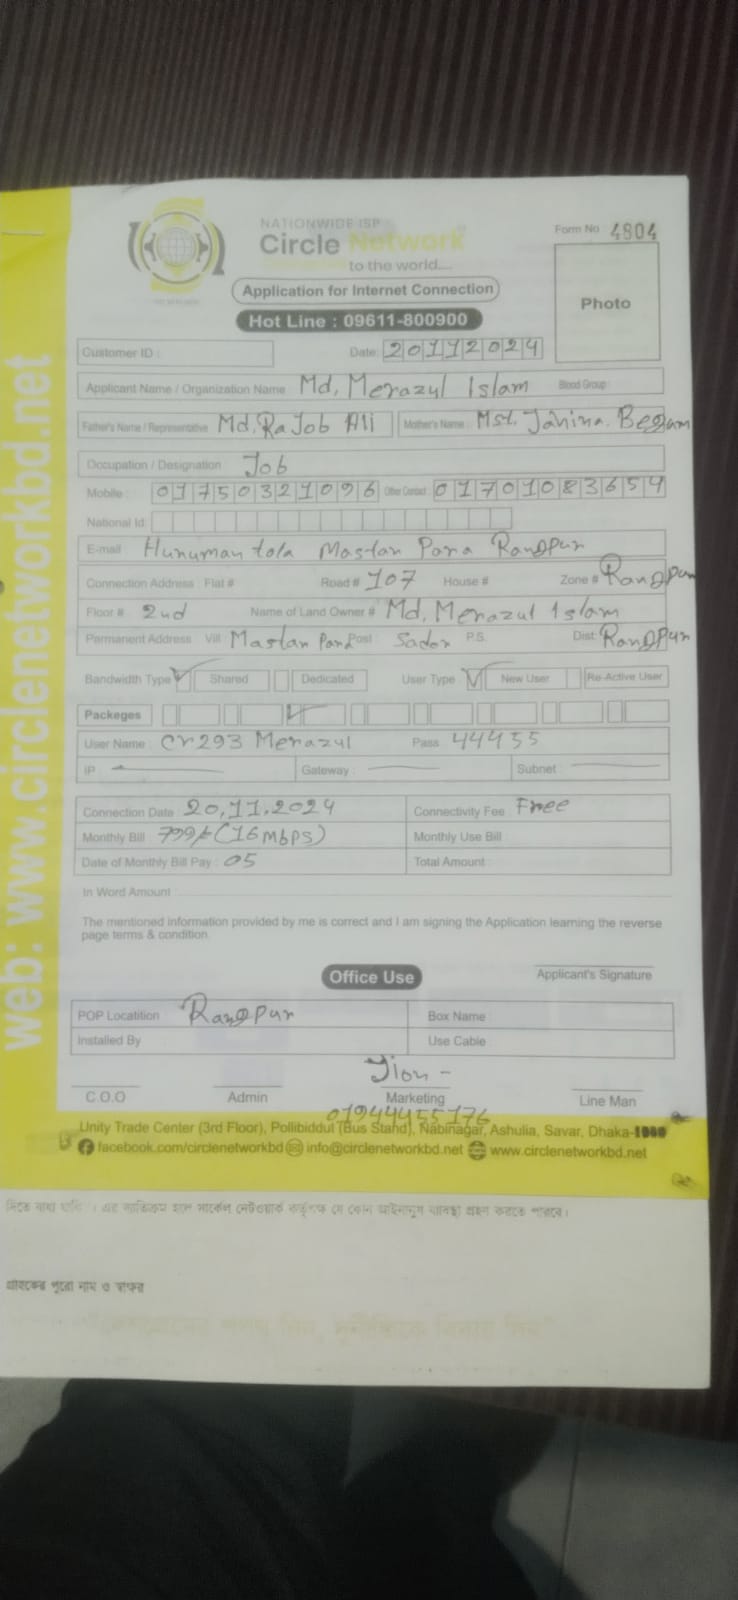 NATIONWIDE ISP
Circle Network
to the world....
Form No 4804
Application for Internet Connection
Hot Line : 09611-800900
Photo
Customer ID :
Date: 20112024
Applicant Name / Organization Name Md. Merazul Islam Blood Group:
Father's Name / Representative Md. RaJob Ali Mother's Name : Mst. Begam
Occupation / Designation Job
Mobile : 01750321096 Other Contact : 01701083654
National Id:
E-mail Hunuman tola Mastan Para Rangpur
Connection Address : Flat # Road # 107 House # Zone # Rangpur
Floor # 2nd Name of Land Owner # Md. Merazul Islam
Permanent Address Vill Mastan Para Post: Sador P.S. Dist: Rangpur
Bandwidth Type Shared Dedicated User Type New User Re-Active User
Packeges
User Name : Cr293 Merazul Pass 44455
IP Gateway : Subnet :
Connection Date : 20.11.2024 Connectivity Fee : Free
Monthly Bill 799/- (16 Mbps) Monthly Use Bill
Date of Monthly Bill Pay : 05 Total Amount :
In Word Amount
The mentioned information provided by me is correct and I am signing the Application learning the reverse
page terms & condition.
Applicant's Signature
Office Use
POP Locatition Rangpur Box Name
Installed By Use Cable
C.O.O Admin Marketing Line Man
01944455176
Unity Trade Center (3rd Floor), Pollibiddut (Bus Stand), Nabinagar, Ashulia, Savar, Dhaka-
facebook.com/circlenetworkbd info@circlenetworkbd.net www.circlenetworkbd.net
web: www.circlenetworkbd.net
দিতে বাধ্য থাকিব। এর ব্যতিক্রম হলে সার্কেল নেটওয়ার্ক কর্তৃপক্ষ যে কোন আইনানুগ ব্যবস্থা গ্রহণ করতে পারবে।
গ্রাহকের পুরো নাম ও স্বাক্ষর